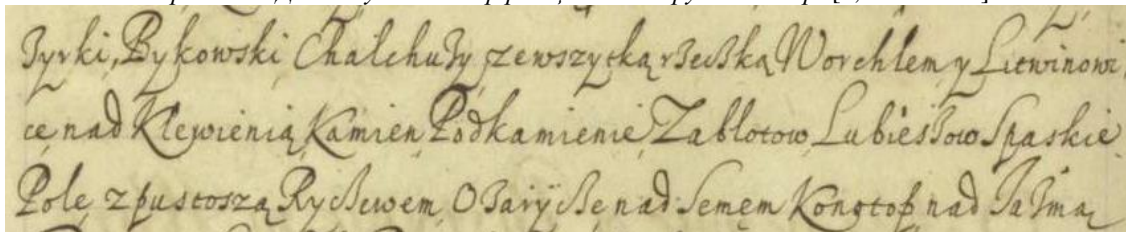 Byrki, Bykowski Chalchuby zewszytką rzeczką Worchlem y Litwinowi,
cę nad Klewienią Kamien Podkamienie Zabłotow Lubieszow Spaskie
Pole z pustoszą Ryszewem Obaryszę nad Semem Konotop nad